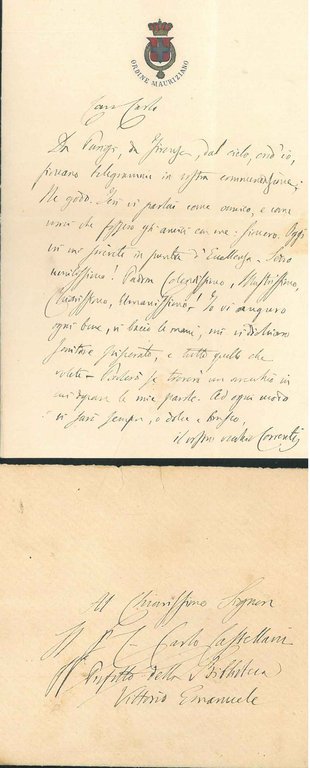 ORDINE MAURIZIANO
Caro Carlo
Da Parigi, da Firenze, dal cielo, ond'io,
piovano telegrammi in vostra commendazione;
Ne godo. Ieri vi parlai come amico, e come
vorrei che fossero gli amici con me: sincero. Oggi
mi scrivete in punta d'Eccellenza - Servo
umilissimo! Padron Colendissimo, Illustrissimo,
Chiarissimo, Umanissimo! Io vi auguro
ogni bene, vi bacio le mani, mi vi dichiaro
servitore, e tutto quello che
volete - se troverò un
le mie parole. Ad ogni modo
vi sarò sempre, o dolce o brusco,
il vostro vecchio Correnti
Al Chiarissimo Signor
Il Sr C. Carlo Castellani
Prefetto della Biblioteca
Vittorio Emanuele